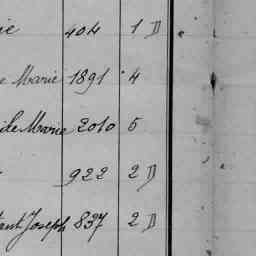 ie 404 1 D
e Marie 1891 4
ile Marie 2010 5
922 2 D
tant Joseph 837 2 D